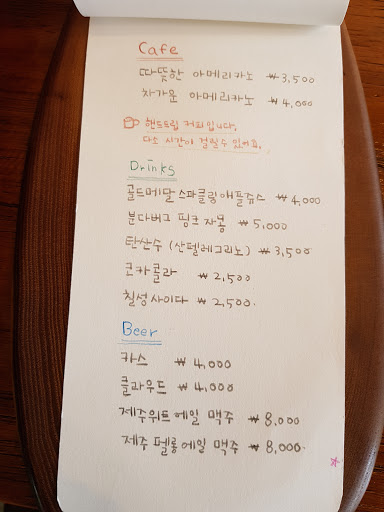 Cafe
따뜻한 아메리카노 ₩3,500
차가운 아메리카노 ₩4,000
핸드드립 커피입니다.
다소 시간이 걸릴수 있어요.
Drinks
골드메달 스파클링애플쥬스 ₩4,000
분다버그 핑크자몽 ₩5,000
탄산수 (산펠레그리노) ₩3,500
코카콜라 ₩2,500
칠성사이다 ₩2,500.
Beer
카스 ₩4,000
클라우드 ₩4,000
제주위트에일 맥주 ₩8,000
제주 펠롱에일 맥주 ₩8,000.